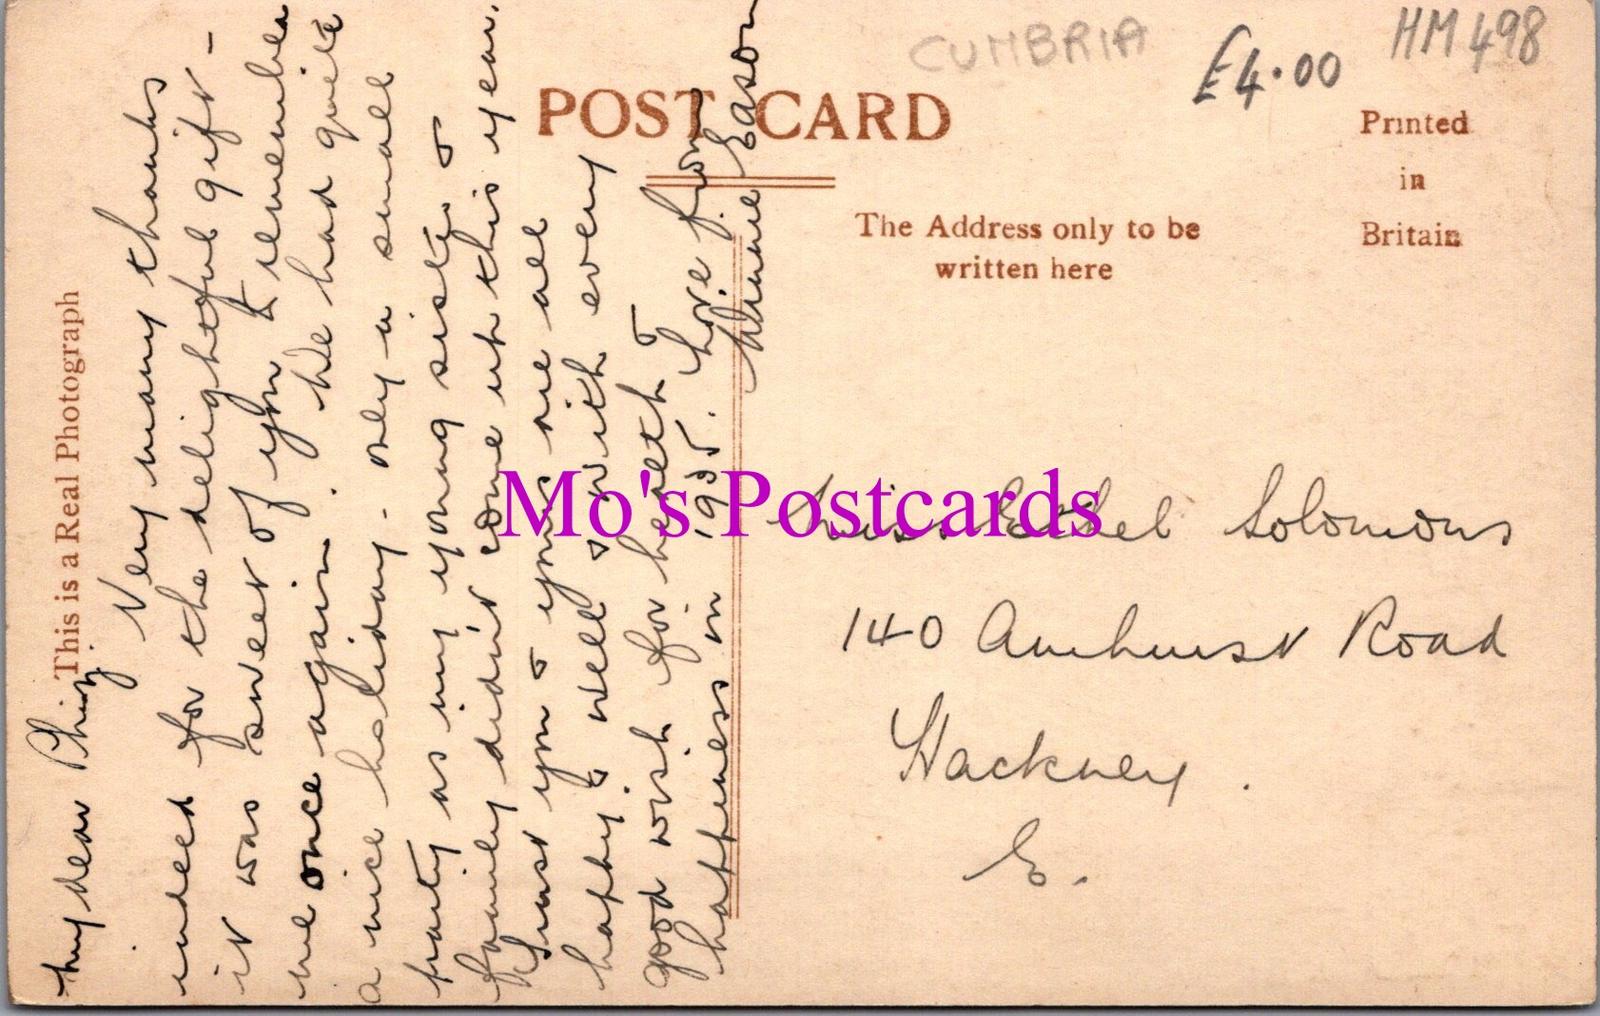 CUMBRIA
£4.00
HM 498
POST CARD
Printed
in
Britain
The Address only to be
written here
This is a Real Photograph
My dear
Very many thanks
indeed for the delightful gift -
it was sweet of you to remember
me once again. We had quite
a nice holiday - only a small
party as my young sister &
family didn't come up this year.
Trust you & yours are all
happy & well & with every
good wish for health &
happiness in 1935. Love from
Eason
Mo's Postcards
Miss Ethel Solomons
140 Amhurst Road
Hackney.
E.